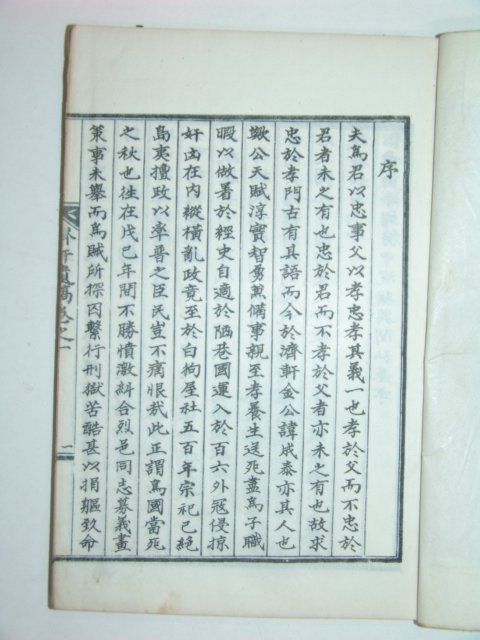 序
夫爲君以忠事父以孝忠孝其義一也孝於父而不忠於
君者未之有也忠於君而不孝於父者亦未之有也故求
忠於孝門古有其語而今於濟軒金公諱成泰亦其人也
歟公天賦淳實智勇兼備事親至孝養生送死盡爲子職
暇以做著於經史自適於陋巷國運入於百六外寇侵掠
奸凶在內縱橫亂政竟至於白狗屋社五百年宗祀已絶
島夷擅政以率普之臣民豈不痛恨哉此正謂爲國當死
之秋也往在戊己年間不勝憤激糾合烈邑同志募義畫
策事未擧而爲賊所探因繫行刑獄苦酷甚以捐軀致命
軒遺稿卷之一
一